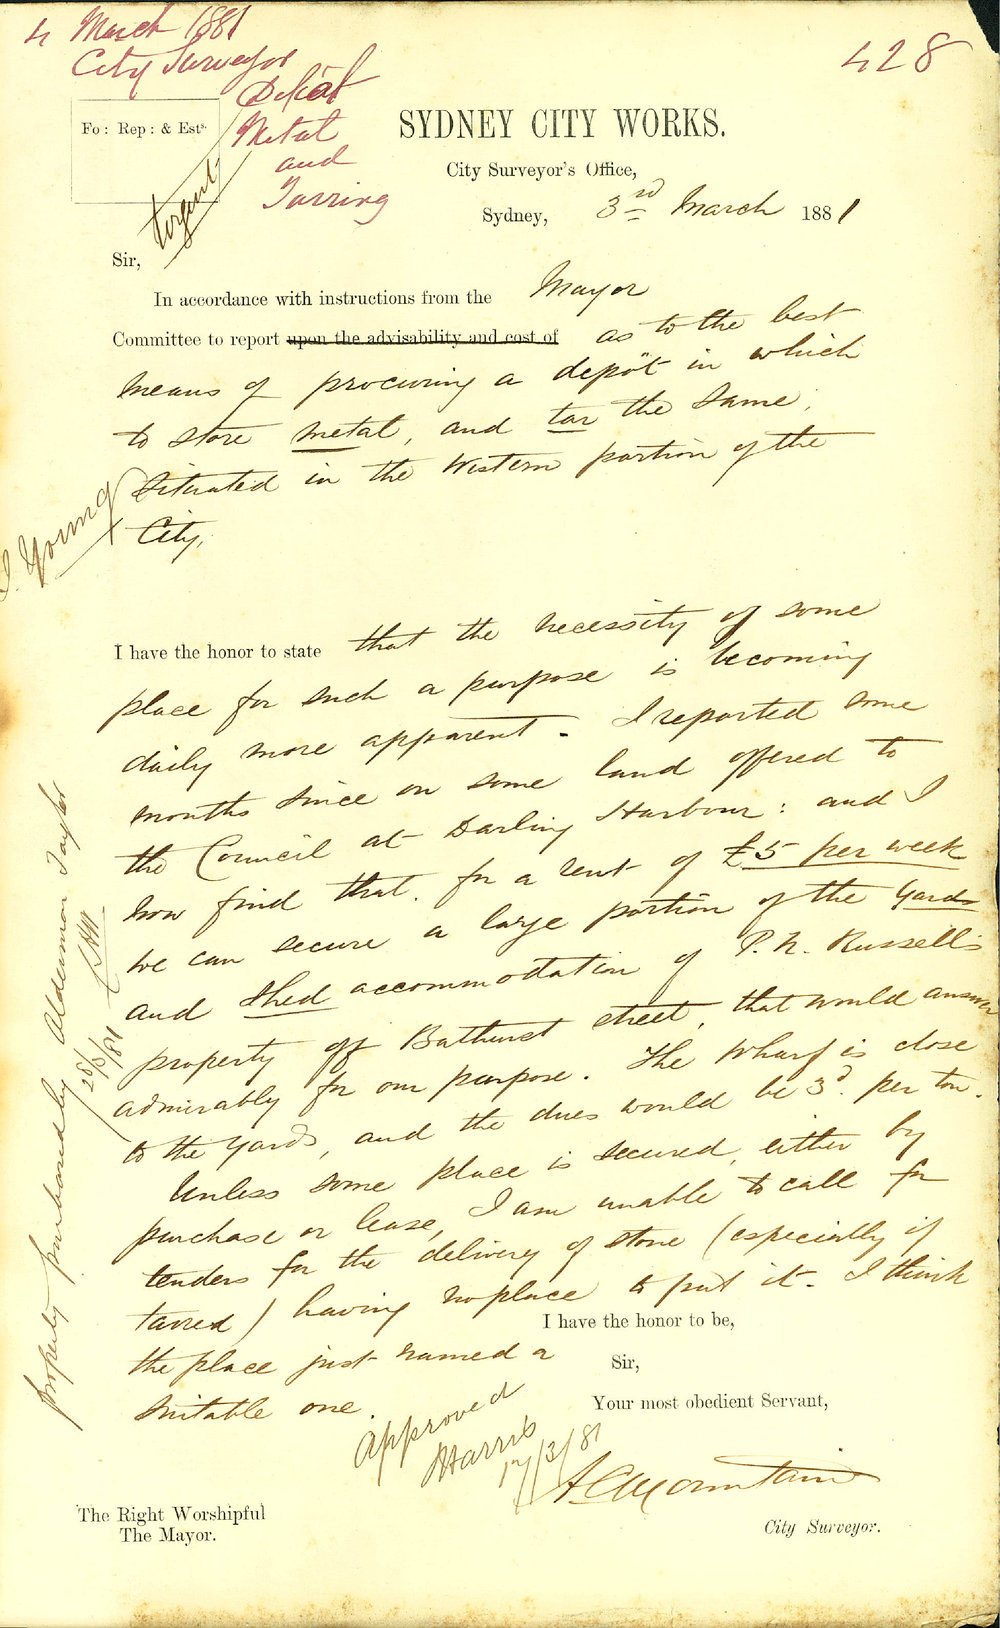 4 March 1881
City Surveyor
Depôt
Metal
and
Tarring
428
Fo: Rep: & Ests.
Urgent
SYDNEY CITY WORKS.
City Surveyor's Office,
Sydney, 3rd March 1881
Sir,
In accordance with instructions from the Mayor
Committee to report upon the advisability and cost of as to the best
means of procuring a depôt in which
to store metal, and tar the same,
situated in the Western portion of the
City.
Young
I have the honor to state that the necessity of some
place for such a purpose is becoming
daily more apparent. I reported some
months since on some land offered to
the Council at Darling Harbour: and I
now find that for a rent of £5 per week
we can secure a large portion of the Yards
and Shed accommodation of P. N. Russell's
property off Bathurst street, that would answer
admirably for our purpose. The Wharf is close
to the Yards, and the dues would be 3d. per ton.
Unless some place is secured, either by
purchase or lease, I am unable to call for
tenders for the delivery of stone (especially if
tarred) having no place to put it. I think
the place just named a
suitable one.
I have the honor to be,
Sir,
Your most obedient Servant,
Approved
Harris
17/3/81
A C Mountain
City Surveyor.
The Right Worshipful
The Mayor.
property purchased by Alderman Taylor
28/3/81